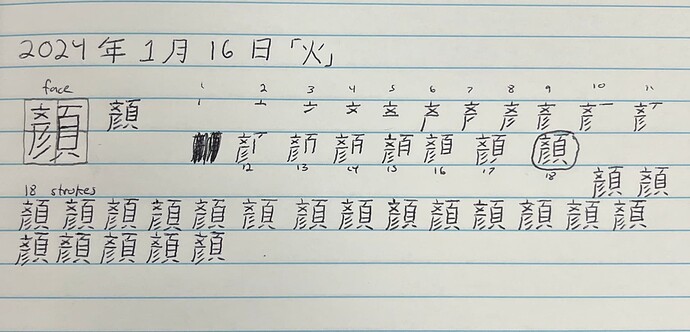 2024年1月16日「火」
face
顔 顔
1 2 3 4 5 6 7 8 9 10 11
12 13 14 15 16 17 18
顔
顔 顔
18 strokes
顔 顔 顔 顔 顔 顔 顔 顔 顔 顔 顔 顔 顔 顔
顔 顔 顔 顔 顔